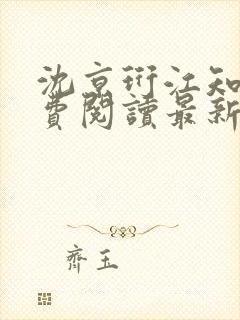 沈京衍江知
費閱讀最新
齊玉